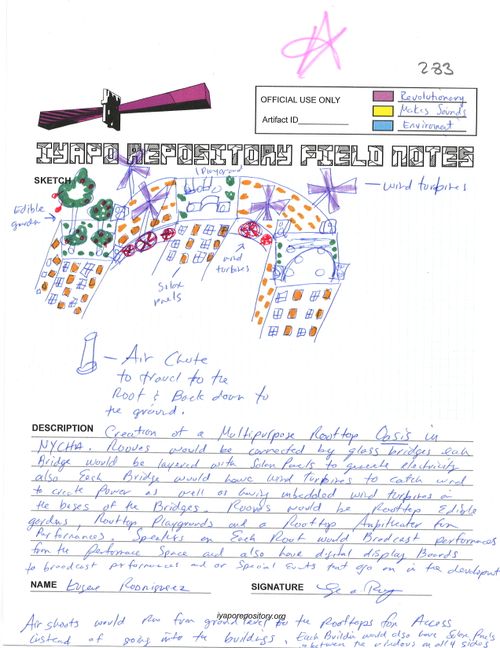 283
OFFICIAL USE ONLY
Artifact ID
Revolutionary
Makes Sounds
Enviroment
IYAPO REPOSITORY FIELD NOTES
SKETCH
Playground
wind turbines
Edible garden
Solar panels
wind turbines
Air Chute
to travel to the
Roof & Back down to
the ground.
DESCRIPTION Creation of a Multipurpose Rooftop Oasis in
NYCHA. Rooves would be connected by glass bridges each
Bridge would be layered with Solar Panels to generate electricity
also Each Bridge would have wind turbines to catch wind
to create power as well as having imbedded wind turbines in
the bases of the Bridges. Rooves would be Rooftop Edible
gardens, Rooftop Playgrounds and a Rooftop Ampitheater for
Performances. Speakers on Each Roof would Brodcast performances
from the Performance Space and also have digital display Boards
to broadcast performances and or Special Events that go on in the development
NAME Eugene Rodriguez SIGNATURE
iyaporepository.org
Air shoots would run from ground level to the Rooftops for Access
instead of going into the buildings. Each Building would also have Solar Panels
between the windows on all 4 sides